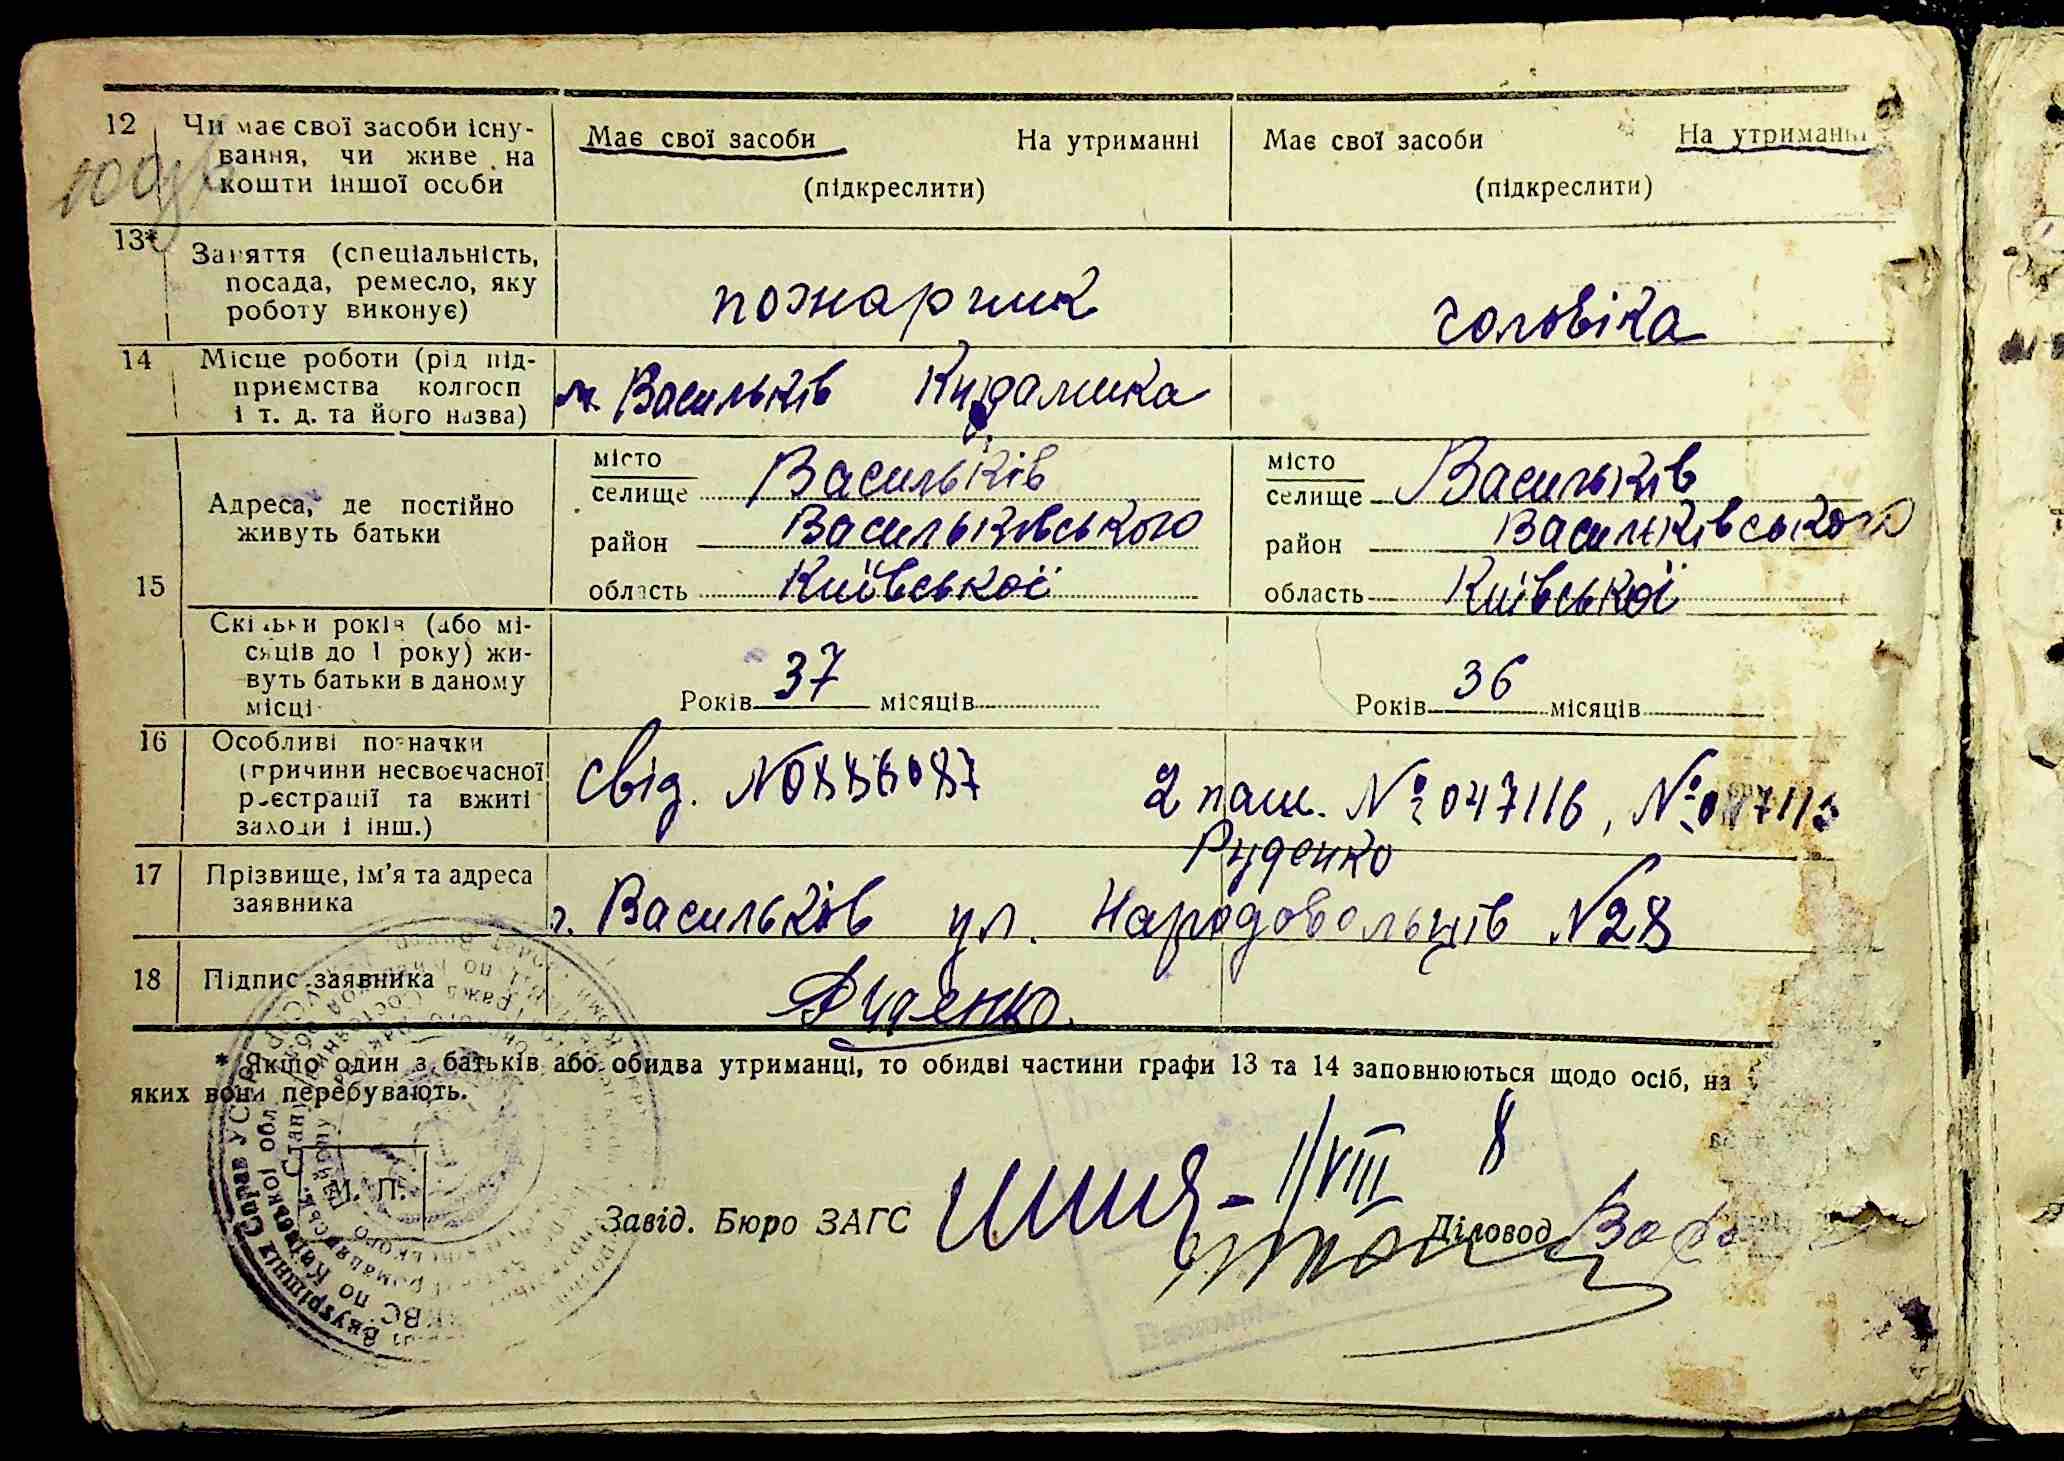 12 Чи має свої засоби існу-
вання, чи живе на
кошти іншої особи
Має свої засоби На утриманні
(підкреслити)
Має свої засоби На утриманні
(підкреслити)
13* Заняття (спеціальність,
посада, ремесло, яку
роботу виконує)
пожарник
чоловіка
14 Місце роботи (рід під-
приємства колгосп
і т. д. та його назва)
м. Васильків
15 Адреса, де постійно
живуть батьки
місто
селище Васильків
район Васильківського
область Київської
місто
селище Васильків
район Васильківського
область Київської
Скільки років (або мі-
сяців до 1 року) жи-
вуть батьки в даному
місці
Років 37 місяців
Років 36 місяців
16 Особливі позначки
(причини несвоєчасної
реєстрації та вжиті
заходи і інш.)
Свід. 2 паш. № 047116, №
17 Прізвище, ім'я та адреса
заявника
Руденко
г. Васильків ул. Народовольців N28
18 Підпис заявника
Руденко
* Якщо один з батьків або обидва утриманці, то обидві частини графи 13 та 14 заповнюються щодо осіб, на
яких вони перебувають.
М. П.
Завід. Бюро ЗАГС
VIII 8
Діловод